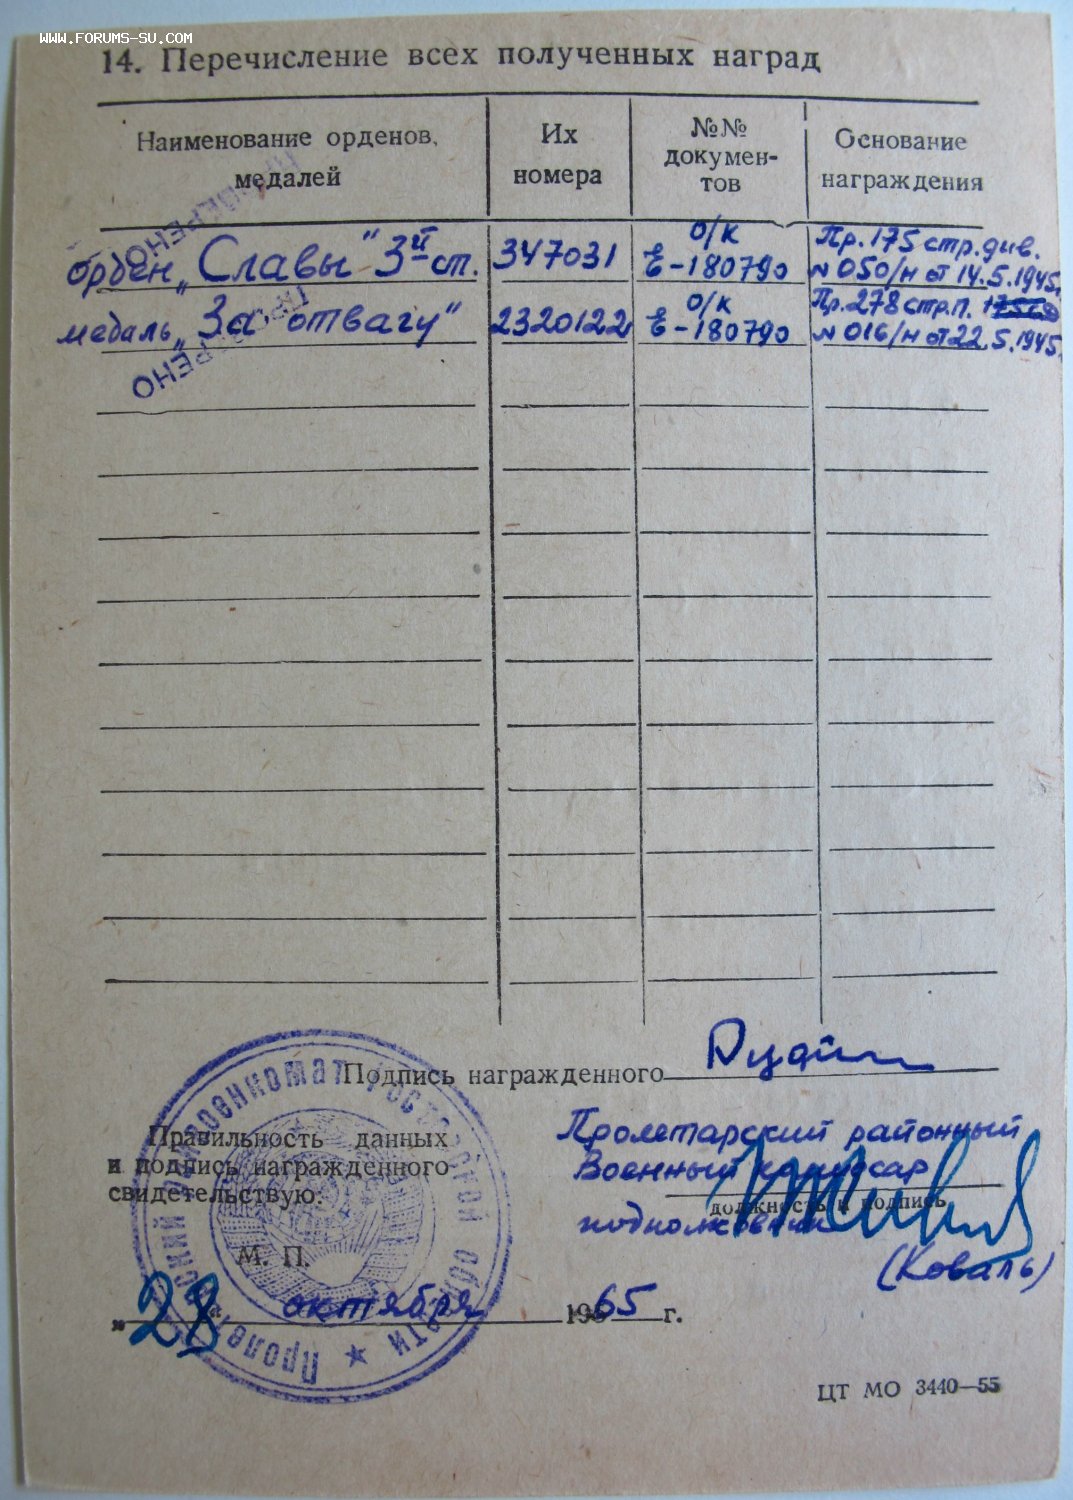 WWW.FORUMS-SU.COM
14. Перечисление всех полученных наград
Наименование орденов, медалей
Их номера
№№ докумен-
тов
Основание награждения
орден „Славы" 3й ст. 347031 о/к Е-180790 Пр. 175 стр. див. № 050/н от 14.5.1945г.
ПРОВЕРЕНО
медаль „За отвагу" 2320122 о/к Е-180790 Пр. 278 стр.п. № 016/н от 22.5.1945г.
ПРОВЕРЕНО
Подпись награжденного
Правильность данных
и подпись награжденного
свидетельствую:
Пролетарский районный
Военный комиссар
должность и подпись
подполковник
(Коваль)
М. П.
„28 октября 1965 г.
Пролетарский райвоенкомат Ростовской области
ЦТ МО 3440—55